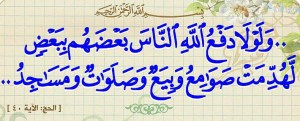 بسم الله الرحمن الرحيم
..وَلَوْلَا دَفْعُ ٱللَّهِ ٱلنَّاسَ بَعْضَهُم بِبَعْضٍ
لَّهُدِّمَتْ صَوَامِعُ وَبِيَعٌ وَصَلَوَاتٌ وَمَسَاجِدُ..
[ الحج: الآية ٤٠ ]